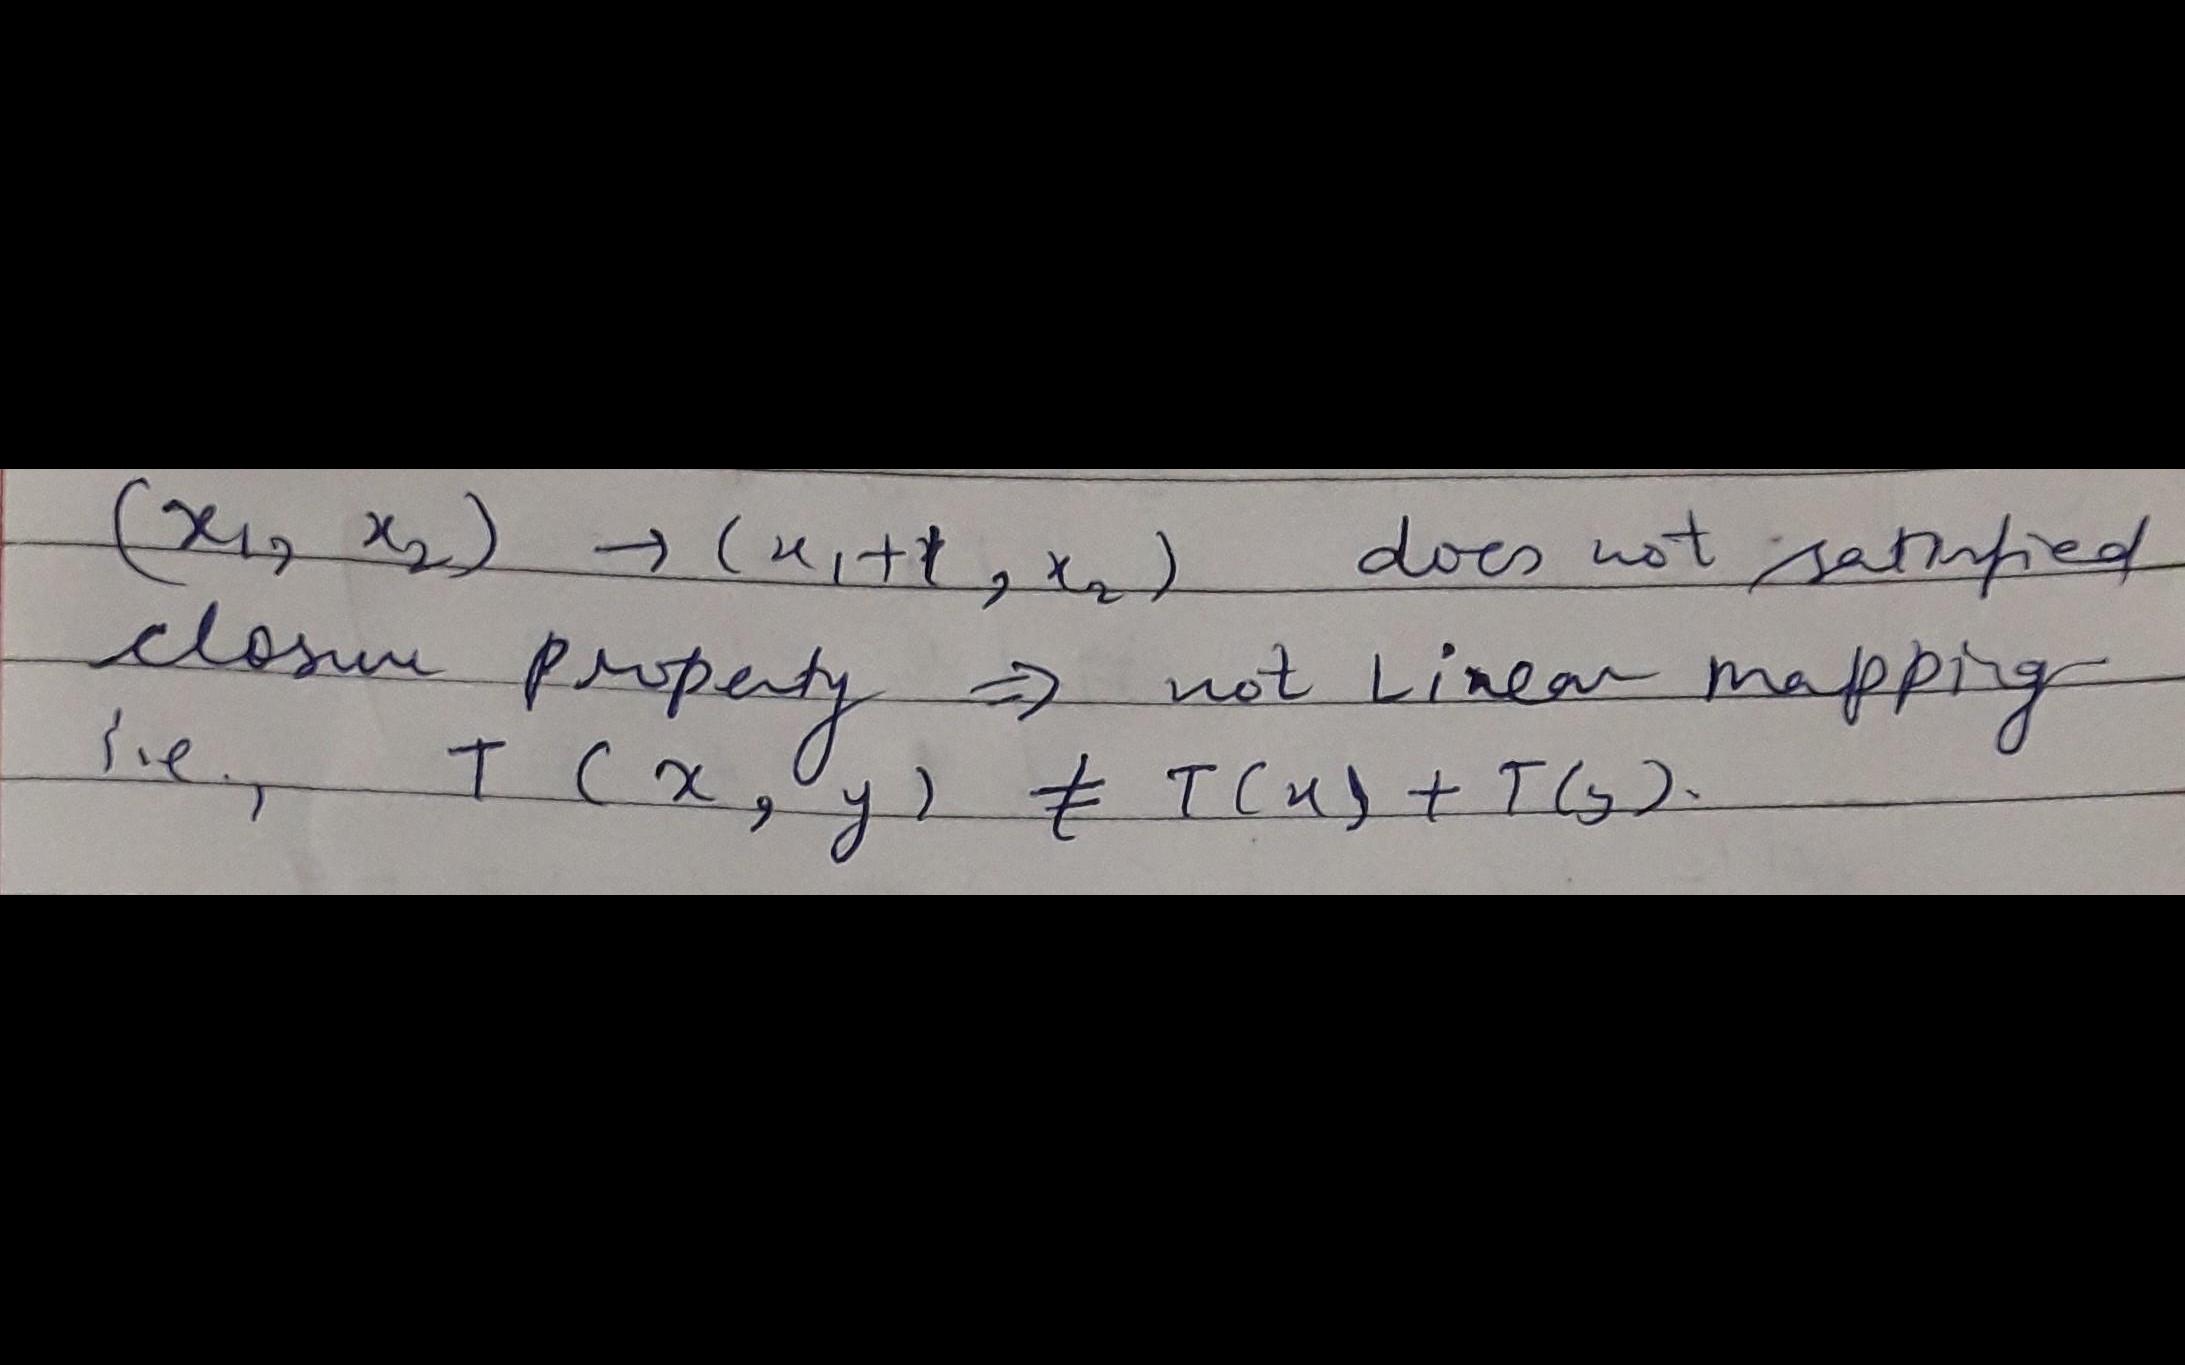 (x₁, x₂) → (x₁+1, x₂) does not satisfied
closure property ⇒ not Linear mapping
i.e., T (x, y) ≠ T(x) + T(y).